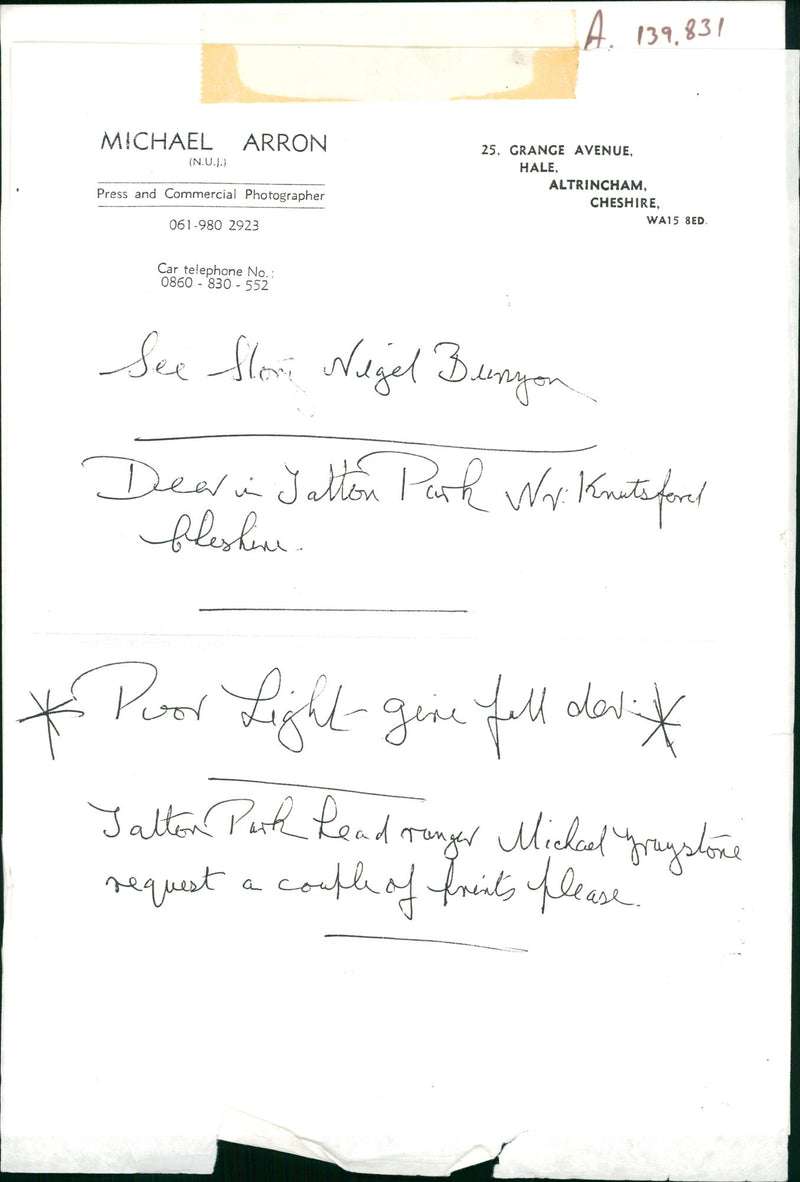 A. 139.831
MICHAEL ARRON
(N.U.J.)
Press and Commercial Photographer
061-980 2923
Car telephone No.:
0860 - 830 - 552
25, GRANGE AVENUE,
HALE,
ALTRINCHAM,
CHESHIRE,
WA15 8ED.
See Nigel Bunyon
Deer in Tatton Park Nr: Knutsford
Cheshire.
Poor Light - give full dev:
Tatton Park head ranger Michael Graystone
request a couple of prints please.